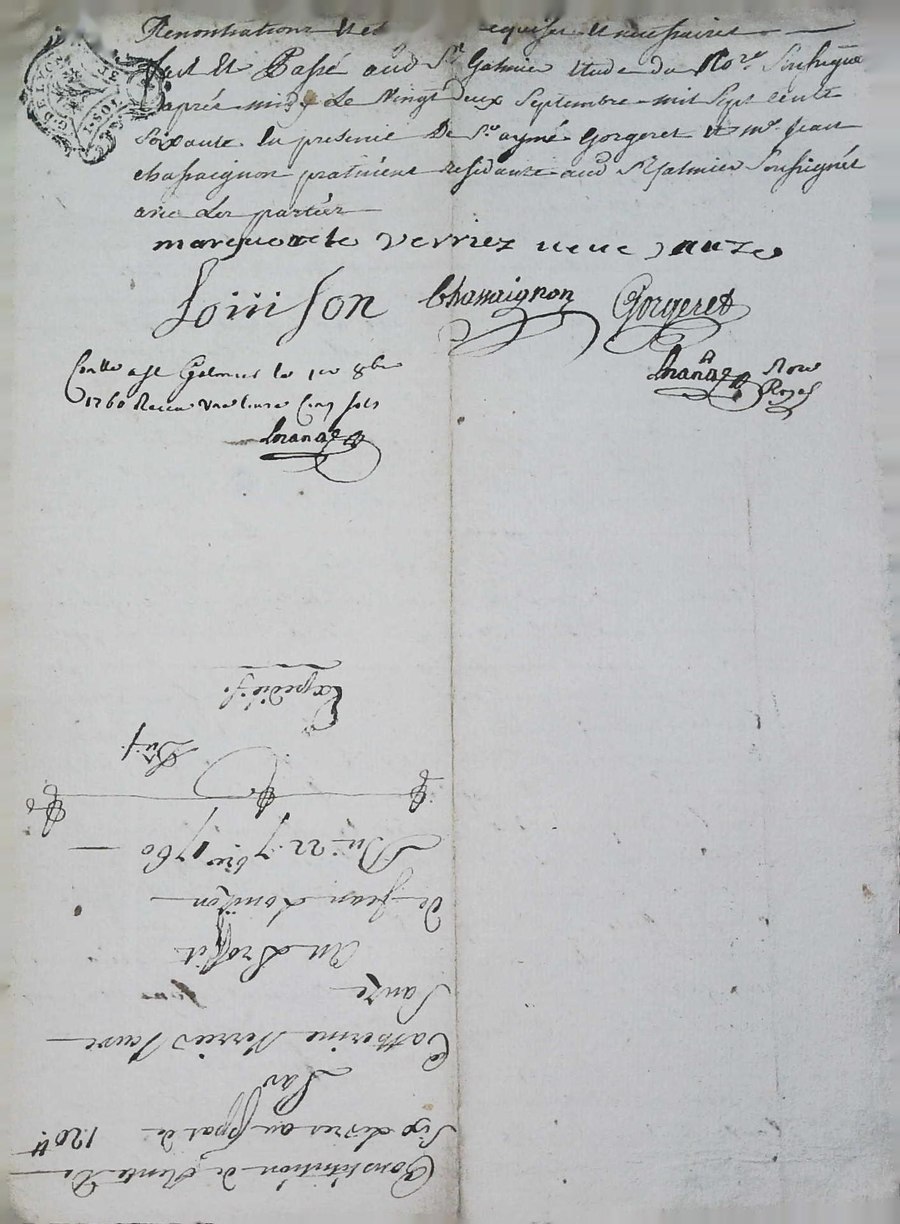 Renontiations et requises et necessaires
fait et Passé aud St Galmier etude du Nore Soussigné
aprés midy le Vingt deux Septembre mil Sept Cents
Soixante En presence De Sr aymé Gorgeret et me jean
chassaignon praticiens residants aud St galmier Soussignés
avec les parties
verriez veuve janze
Louison Chassaignon Gorgeret
Conlle a St Galmier le 1er 8bre
1760 Recu une livre Cinq sols
Nore
Royal
Constitution de Rente De
Six Livres au ppal de 120 ll
Par
Catherine Verries Veuve
Janze
Au Proffit
De Jean Louison
Du 22. 7bre 1760
Expedié